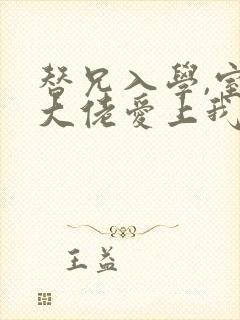 替兄入學,室
大佬愛上我
王益